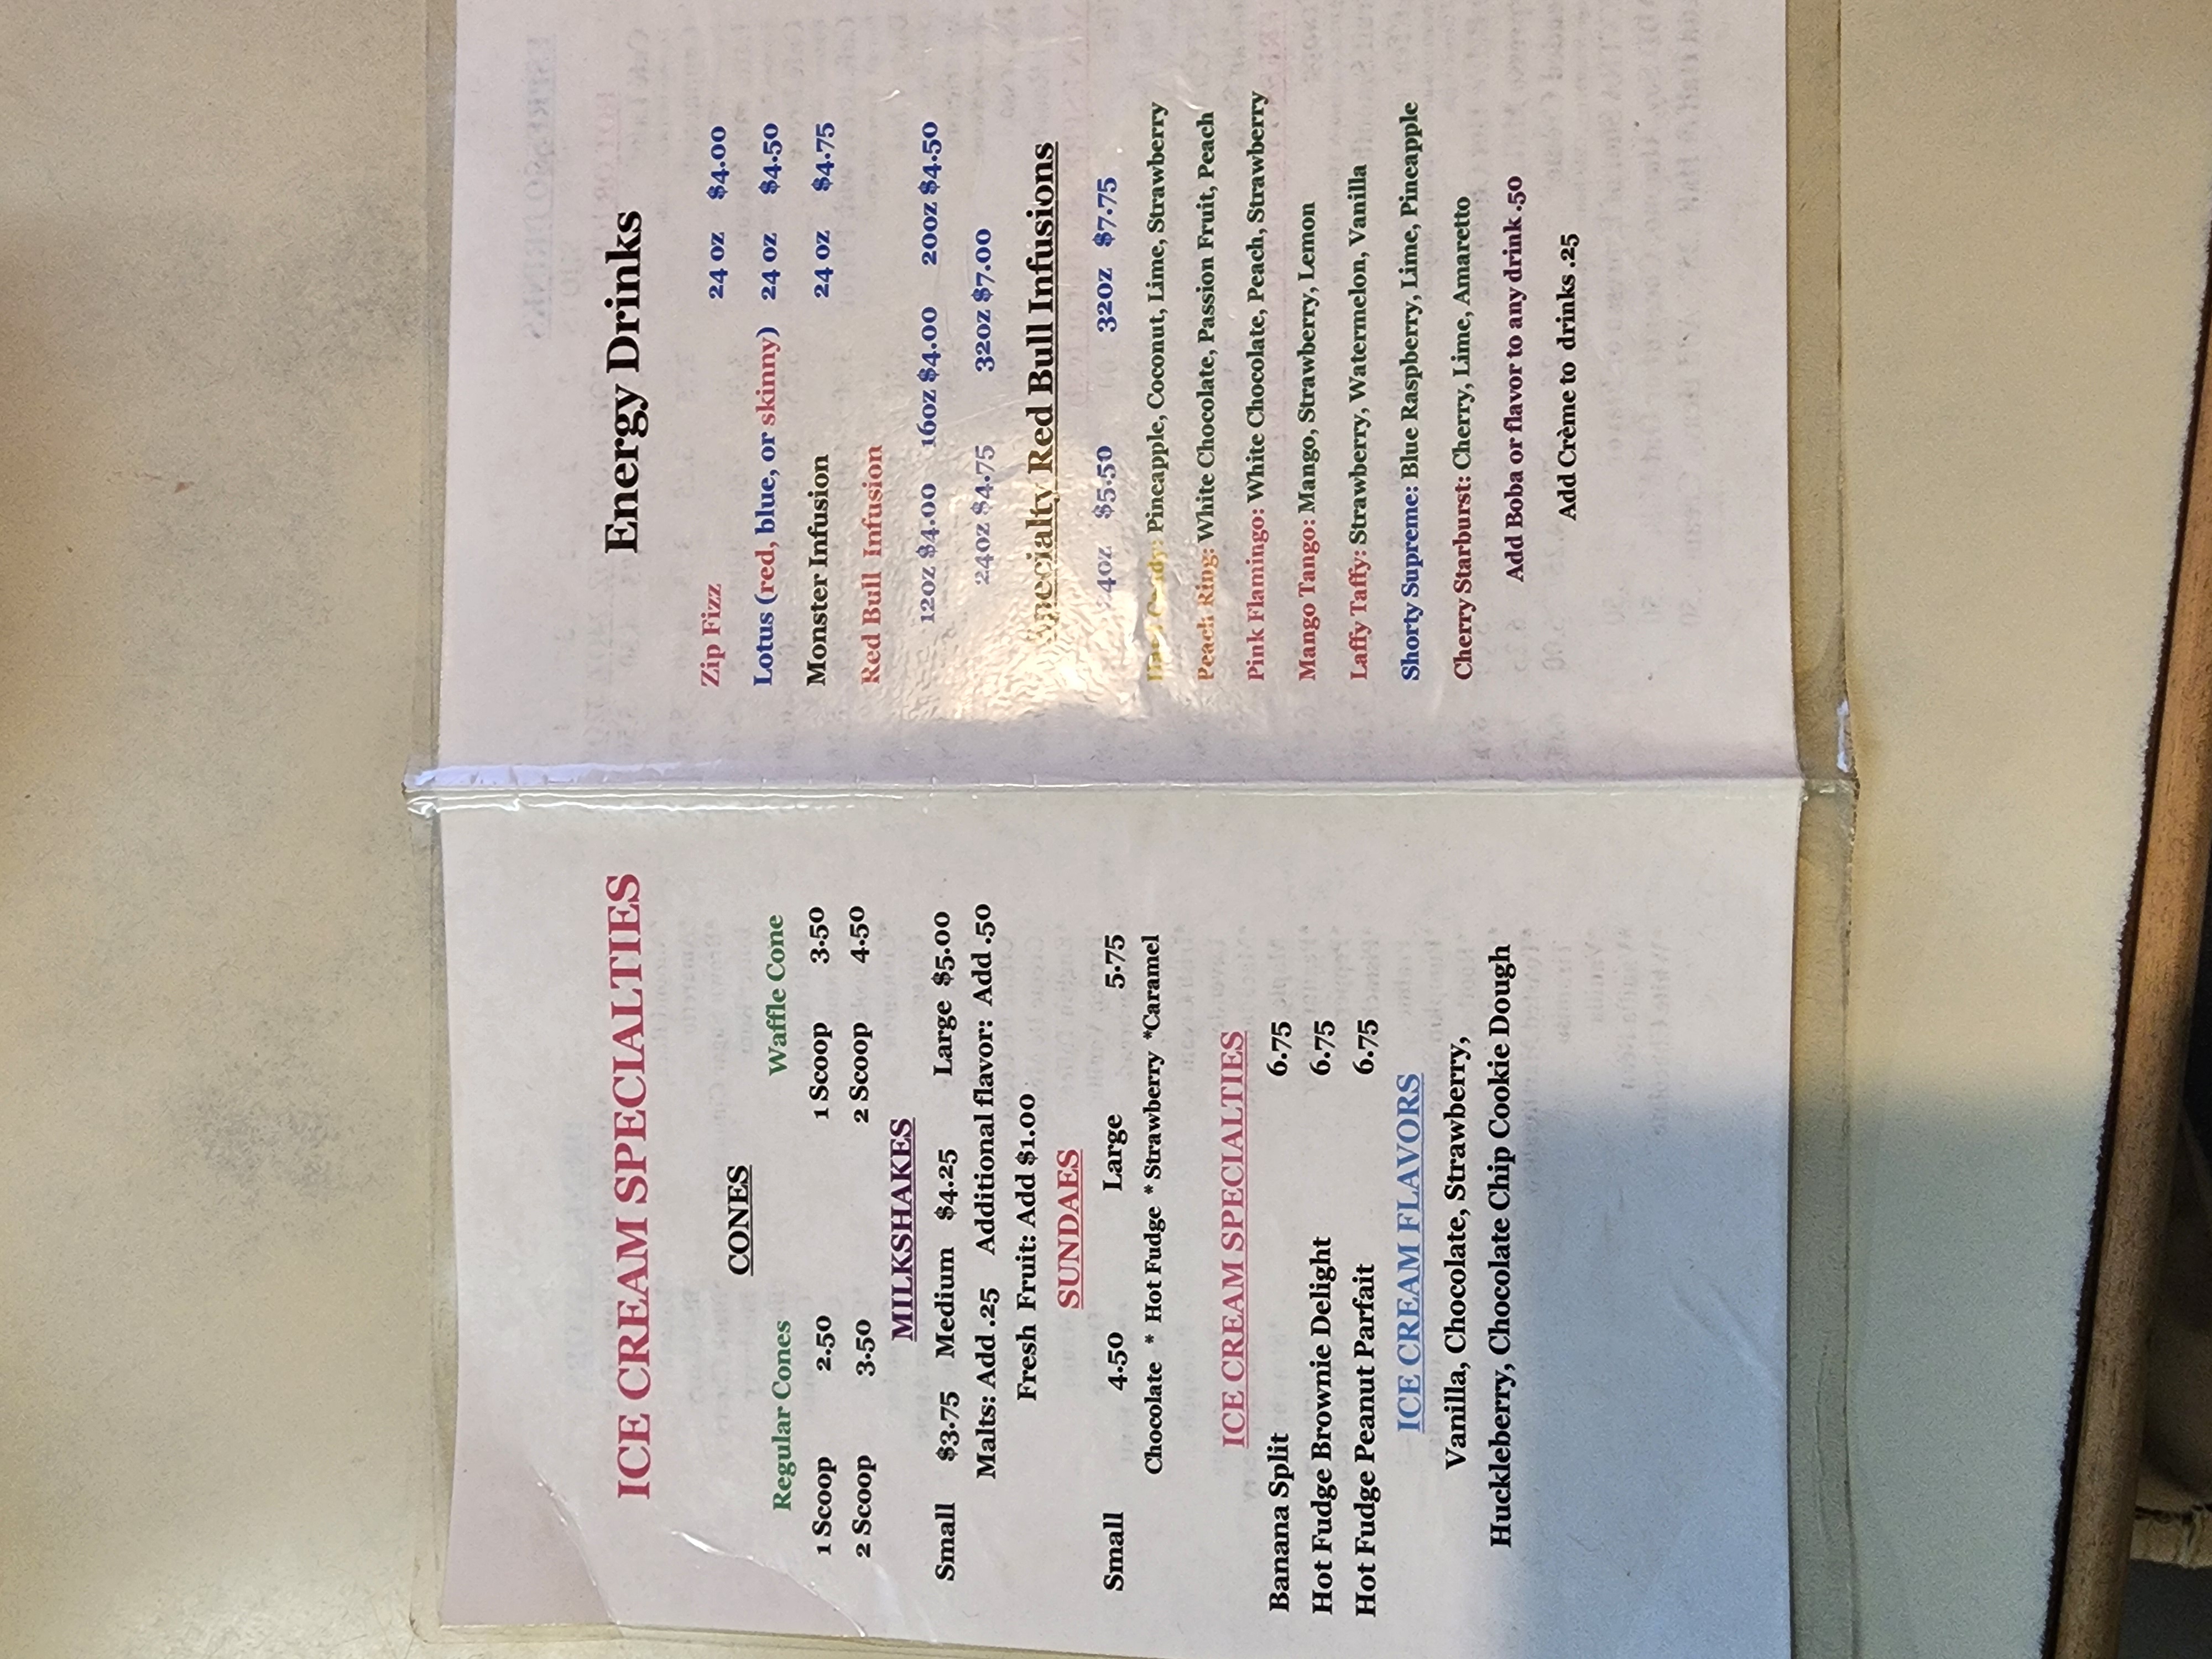 ICE CREAM SPECIALTIES
CONES
Regular Cones Waffle Cone
1 Scoop 2.50 1 Scoop 3.50
2 Scoop 3.50 2 Scoop 4.50
MILKSHAKES
Small $3.75 Medium $4.25 Large $5.00
Malts: Add .25 Additional flavor: Add .50
Fresh Fruit: Add $1.00
SUNDAES
Small 4.50 Large 5.75
Chocolate * Hot Fudge * Strawberry *Caramel
ICE CREAM SPECIALTIES
Banana Split 6.75
Hot Fudge Brownie Delight 6.75
Hot Fudge Peanut Parfait 6.75
ICE CREAM FLAVORS
Vanilla, Chocolate, Strawberry,
Huckleberry, Chocolate Chip Cookie Dough
Energy Drinks
Zip Fizz 24 oz $4.00
Lotus (red, blue, or skinny) 24 oz $4.50
Monster Infusion 24 oz $4.75
Red Bull Infusion
12oz $4.00 16oz $4.00 20oz $4.50
24oz $4.75 32oz $7.00
Specialty Red Bull Infusions
24oz $5.50 32oz $7.75
Pineapple, Coconut, Lime, Strawberry
Peach Ring: White Chocolate, Passion Fruit, Peach
Pink Flamingo: White Chocolate, Peach, Strawberry
Mango Tango: Mango, Strawberry, Lemon
Laffy Taffy: Strawberry, Watermelon, Vanilla
Shorty Supreme: Blue Raspberry, Lime, Pineapple
Cherry Starburst: Cherry, Lime, Amaretto
Add Boba or flavor to any drink .50
Add Crème to drinks .25